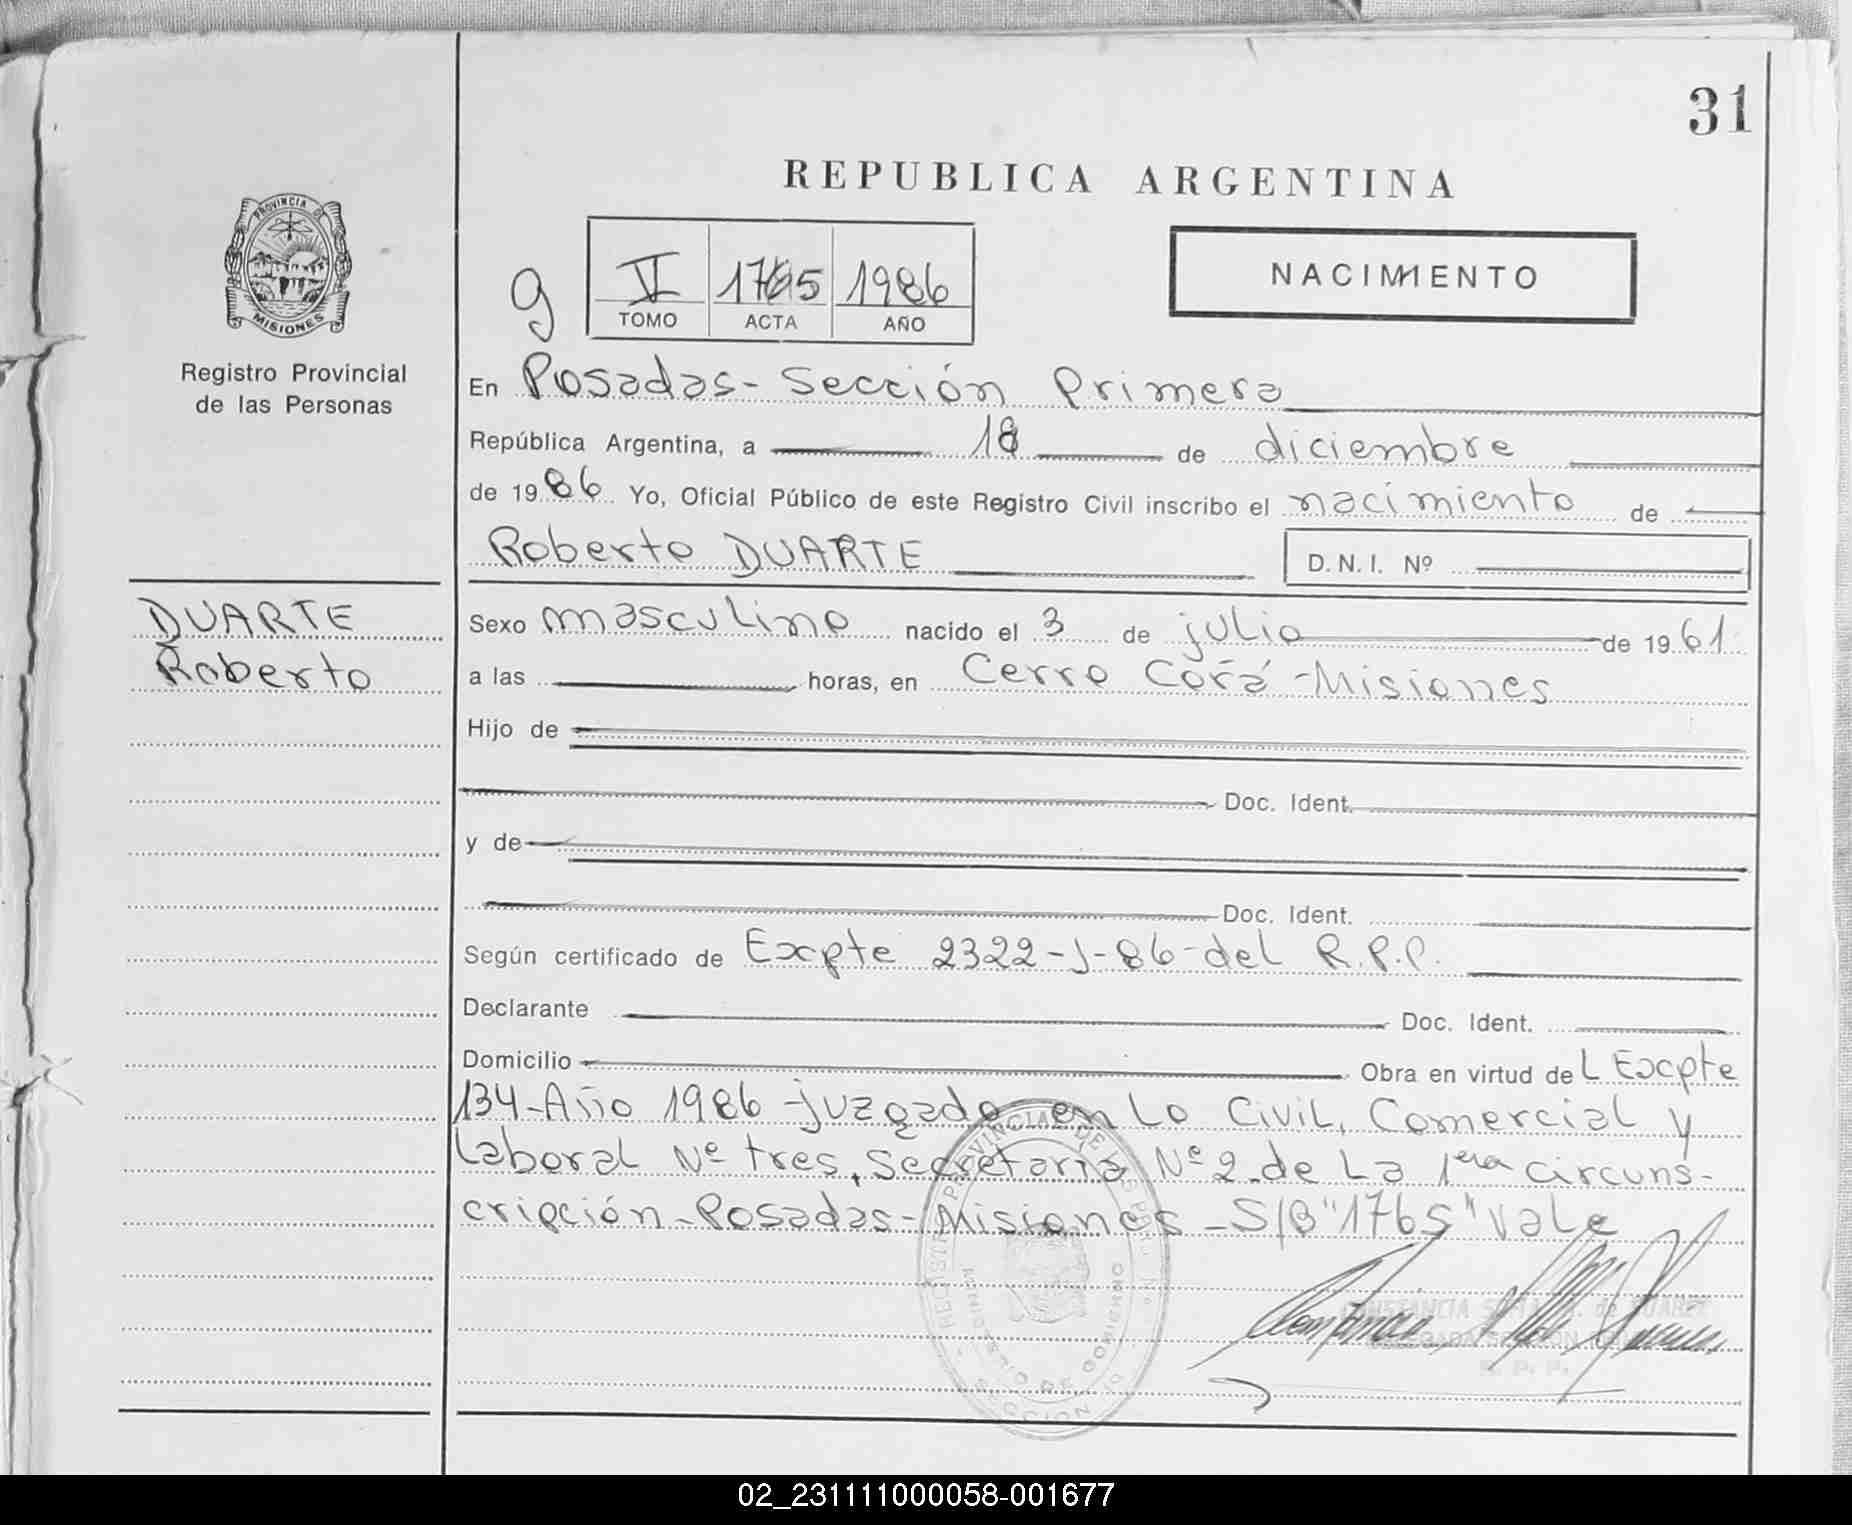 31
REPUBLICA ARGENTINA
PROVINCIA DE
MISIONES
Registro Provincial
de las Personas
g
V 1765 1986
TOMO ACTA AÑO
NACIMIENTO
En Posadas - Sección Primera
República Argentina, a 18 de diciembre
de 1986 Yo, Oficial Público de este Registro Civil inscribo el nacimiento de
Roberto DUARTE D.N.I. Nº
DUARTE
Roberto
Sexo masculino nacido el 3 de julio de 1961
a las horas, en Cerro Corá - Misiones
Hijo de
Doc. Ident.
y de
Doc. Ident.
Según certificado de Excpte 2322-J-86-del R.P.P.
Declarante Doc. Ident.
Domicilio Obra en virtud del Excpte
134-Año 1986-juzgado en Lo Civil, Comercial y
Laboral Nº tres, Secretaria Nº 2 de La 1era circuns-
cripción-Posadas-Misiones-S/B "1765" Vale
SECCION
R. P. P.
02_231111000058-001677